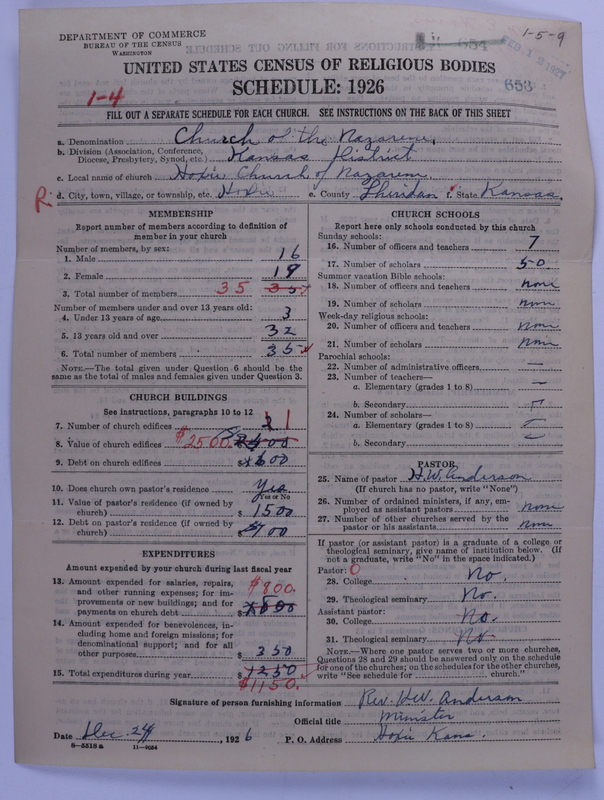 DEPARTMENT OF COMMERCE
BUREAU OF THE CENSUS
WASHINGTON
1-5-9
654
FEB 12 1927
653
UNITED STATES CENSUS OF RELIGIOUS BODIES
SCHEDULE: 1926
1-4
FILL OUT A SEPARATE SCHEDULE FOR EACH CHURCH. SEE INSTRUCTIONS ON THE BACK OF THIS SHEET
a. Denomination Church of the Nazarene
b. Division (Association, Conference, Diocese, Presbytery, Synod, etc.) Kansas District
c. Local name of church Hoxie Church of Nazarene
R. d. City, town, village, or township, etc. Hoxie e. County Sheridan f. State Kansas
MEMBERSHIP
Report number of members according to definition of
member in your church
Number of members, by sex:
1. Male 16
2. Female 19
3. Total number of members 35 35
Number of members under and over 13 years old:
4. Under 13 years of age 3
5. 13 years old and over 32
6. Total number of members 35
NOTE.—The total given under Question 6 should be
same as the total of males and females given under Question 3.
CHURCH BUILDINGS
See instructions, paragraphs 10 to 12
7. Number of church edifices 1
8. Value of church edifices $2500.
9. Debt on church edifices $ 600
10. Does church own pastor's residence Yes
Yes or No
11. Value of pastor's residence (if owned by
church) $ 1500
12. Debt on pastor's residence (if owned by
church) $ 700
EXPENDITURES
Amount expended by your church during last fiscal year
13. Amount expended for salaries, repairs,
and other running expenses; for im-
provements or new buildings; and for
payments on church debt $800.
14. Amount expended for benevolences, in-
cluding home and foreign missions; for
denominational support; and for all
other purposes $ 350
15. Total expenditures during year $ 1250
$1150.
CHURCH SCHOOLS
Report here only schools conducted by this church
Sunday schools:
16. Number of officers and teachers 7
17. Number of scholars 50
Summer vacation Bible schools:
18. Number of officers and teachers none
19. Number of scholars none
Week-day religious schools:
20. Number of officers and teachers none
21. Number of scholars none
Parochial schools:
22. Number of administrative officers —
23. Number of teachers—
a. Elementary (grades 1 to 8) —
b. Secondary
24. Number of scholars—
a. Elementary (grades 1 to 8)
b. Secondary
PASTOR
25. Name of pastor H.W. Anderson
(If church has no pastor, write "None")
26. Number of ordained ministers, if any, em-
ployed as assistant pastors none
27. Number of other churches served by the
pastor or his assistants none
If pastor (or assistant pastor) is a graduate of a college or
theological seminary, give name of institution below. (If
not a graduate, write "No" in the space indicated.)
Pastor: 0
28. College No.
29. Theological seminary No.
Assistant pastor:
30. College No.
31. Theological seminary No
NOTE.—Where one pastor serves two or more churches,
Questions 28 and 29 should be answered only on the schedule
for one of the churches; on the schedules for the other churches,
write "See schedule for church."
Signature of person furnishing information Rev. H.W. Anderson
Official title Minister
Date Dec 29, 1926 P. O. Address Hoxie Kans.
8-5518 a 11-9084